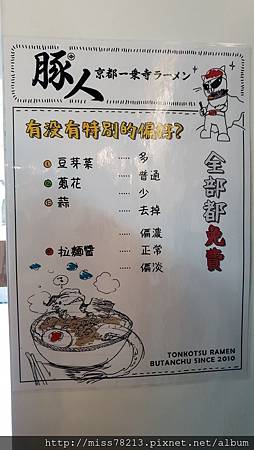 豚人 京都一乗寺ラーメン
有没有特別的偏好?
豆芽菜 ..... 多
蔥花 ..... 普通
蒜 ..... 少
..... 去掉
..... 偏濃
拉麵醬 ..... 正常
..... 偏淡
全部都免費
TONKOTSU RAMEN
BUTANCHU SINCE 2010
http://miss78213.pixnet.net/album